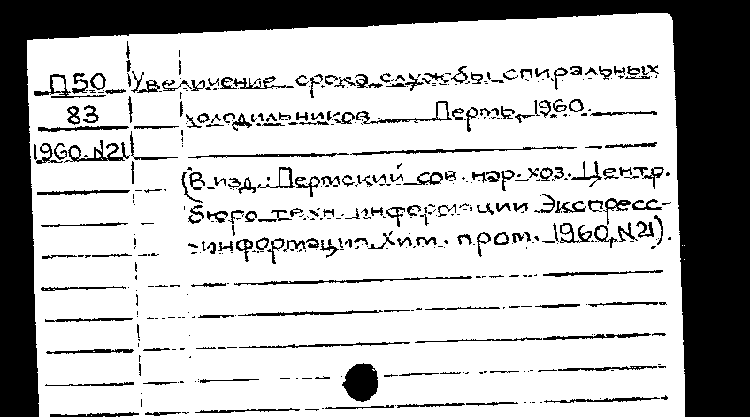 П50 Увеличение срока службы спиральных
83 холодильников Пермь, 1960.
1960.N21
(В изд.: Пермский сов. нар. хоз. Центр.
бюро техн. информации Экспресс-
-информация. Хим. пром. 1960, N21).